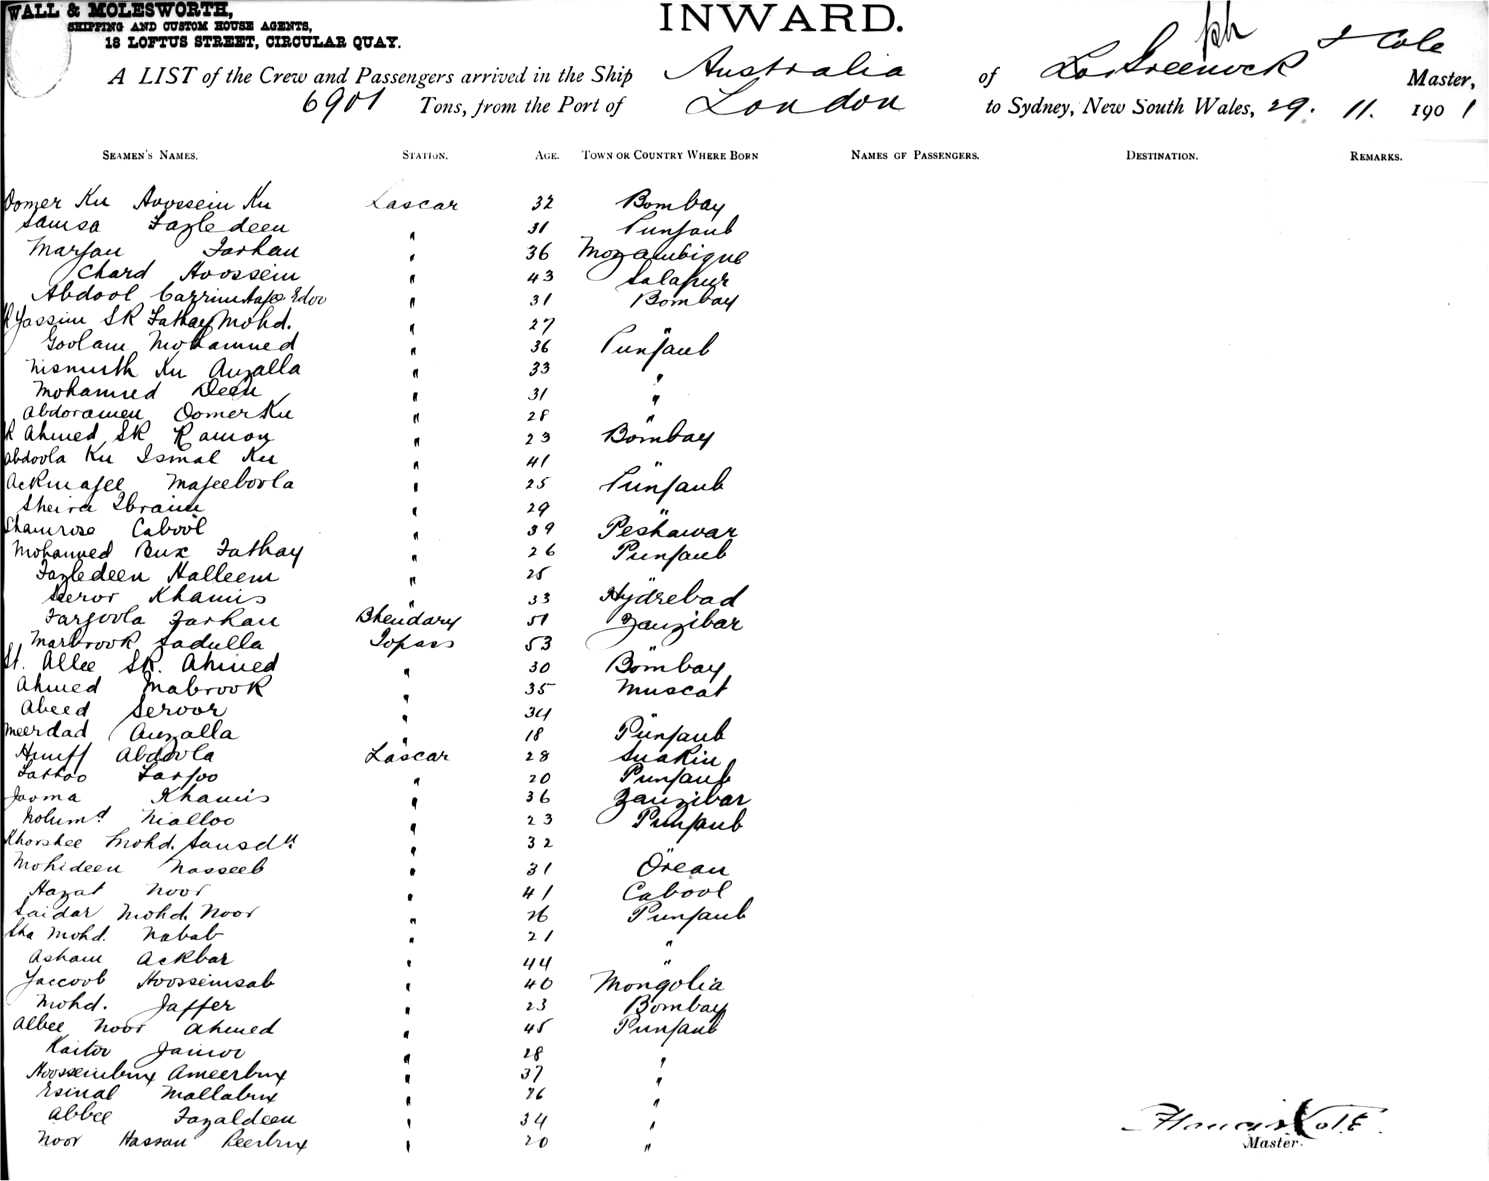 WALL & MOLESWORTH,
SHIPPING AND CUSTOM HOUSE AGENTS,
18 LOFTUS STREET, CIRCULAR QUAY.
INWARD.
A LIST of the Crew and Passengers arrived in the Ship Australia of Greenock F Cole Master,
6901 Tons, from the Port of London to Sydney, New South Wales, 29. 11. 1901
SEAMEN'S NAMES. STATION. AGE. TOWN OR COUNTRY WHERE BORN NAMES OF PASSENGERS. DESTINATION. REMARKS.
Oomer Kn Hoossein Kn Lascar 32 Bombay
Samsa Fazledeen " 31 Punjaub
Marjan Farhan " 36 Mozambique
Chard Hoossein " 43 Salapur
Abdool " 31 Bombay
Yassim SK Fathay Mohd. " 27 "
Goolam Mohamed " 36 Punjaub
Kn Auzalla " 33 "
Mohamed Deen " 31 "
Abdoramen Oomer Kn " 28 "
Ahmed SK Ramon " 23 Bombay
Abdoola Kn Ismal Kn " 41 "
Majeeboola " 25 Punjaub
Ibraim " 29 "
Shamrose Cabool " 39 Peshawar
Mohamed Bux Fathay " 26 Punjaub
Fazledeen Halleem " 25 "
Seror Khamis " 33 Hydrebad
Farjoola Farhan Bhendary 51 Zanzibar
Marbrook Sadulla Topass 53 "
Allee SK. Ahmed " 30 Bombay
Ahmed Mabrook " 35 Muscat
Abeed Seroor " 34 "
Meerdad Auzalla " 18 Punjaub
Abdoola Lascar 28 Suakin
Fattoo Farjoo " 20 Punjaub
Jooma Khamis " 36 Zanzibar
Nialloo " 23 Punjaub
Khorshee Mohd. " 32 "
Mohideen Nasseeb " 31 Orean
Hazat Noor " 41 Cabool
Saidar Mohd. Noor " 26 Punjaub
Sha Mohd. Nabab " 21 "
Asham Ackbar " 44 "
Yaccoob Hoosseinsab " 40 Mongolia
Mohd. Jaffer " 23 Bombay
Albee Noor Ahmed " 45 Punjaub
" 28 "
Hoosseinbux Ameerbux " 37 "
Esinal Mallabux " 26 "
Abbee Fazaldeen " 34 "
Noor Hassan Peerbux " 20 "
Francis Cole
Master.